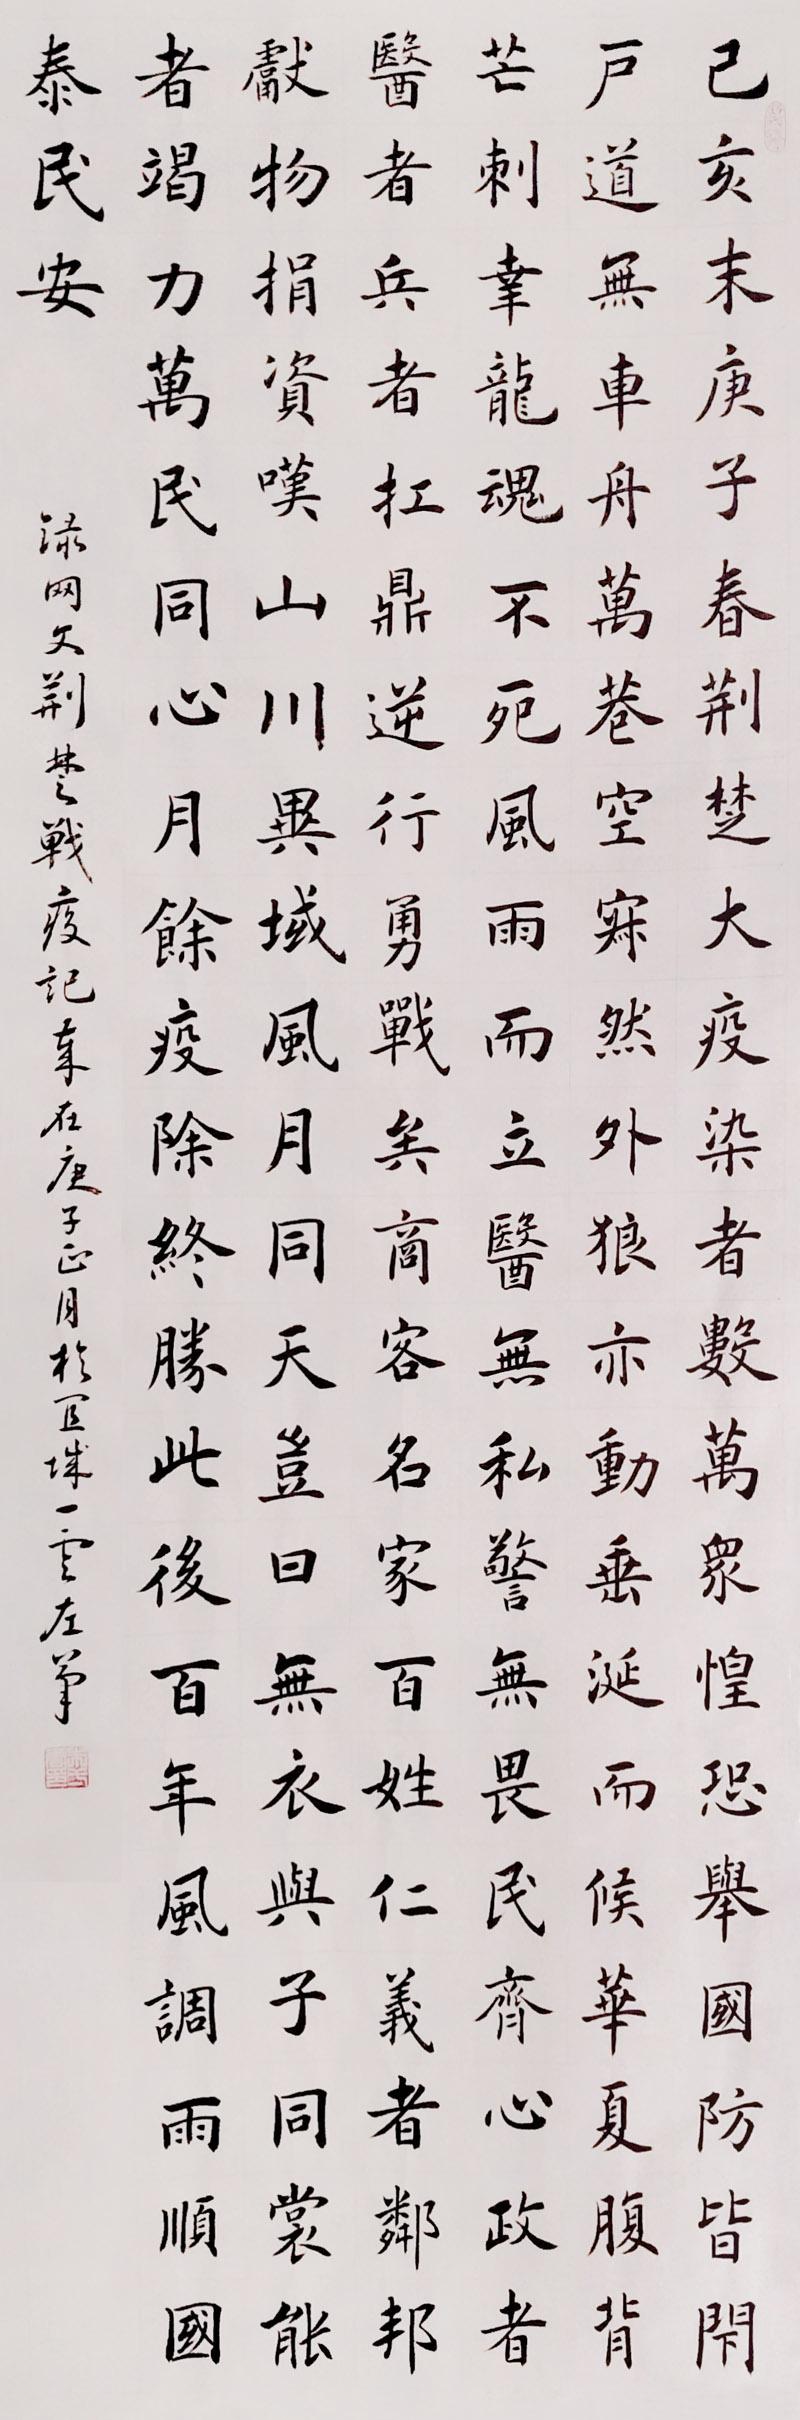 己亥末庚子春荆楚大疫染者數萬衆惶恐舉國防皆閇
戸道無車舟萬巷空寂然外狼亦動垂涎而候華夏腹背
芒刺幸龍魂不死風雨而立醫無私警無畏民齊心政者
醫者兵者扛鼎逆行勇戰矣商客名家百姓仁義者鄰邦
獻物捐資嘆山川異域風月同天豈曰無衣與子同裳能
者竭力萬民同心月餘疫除終勝此後百年風調雨順國
泰民安
錄网文荆楚戰疫記事在庚子正月於宜城一雲左筆